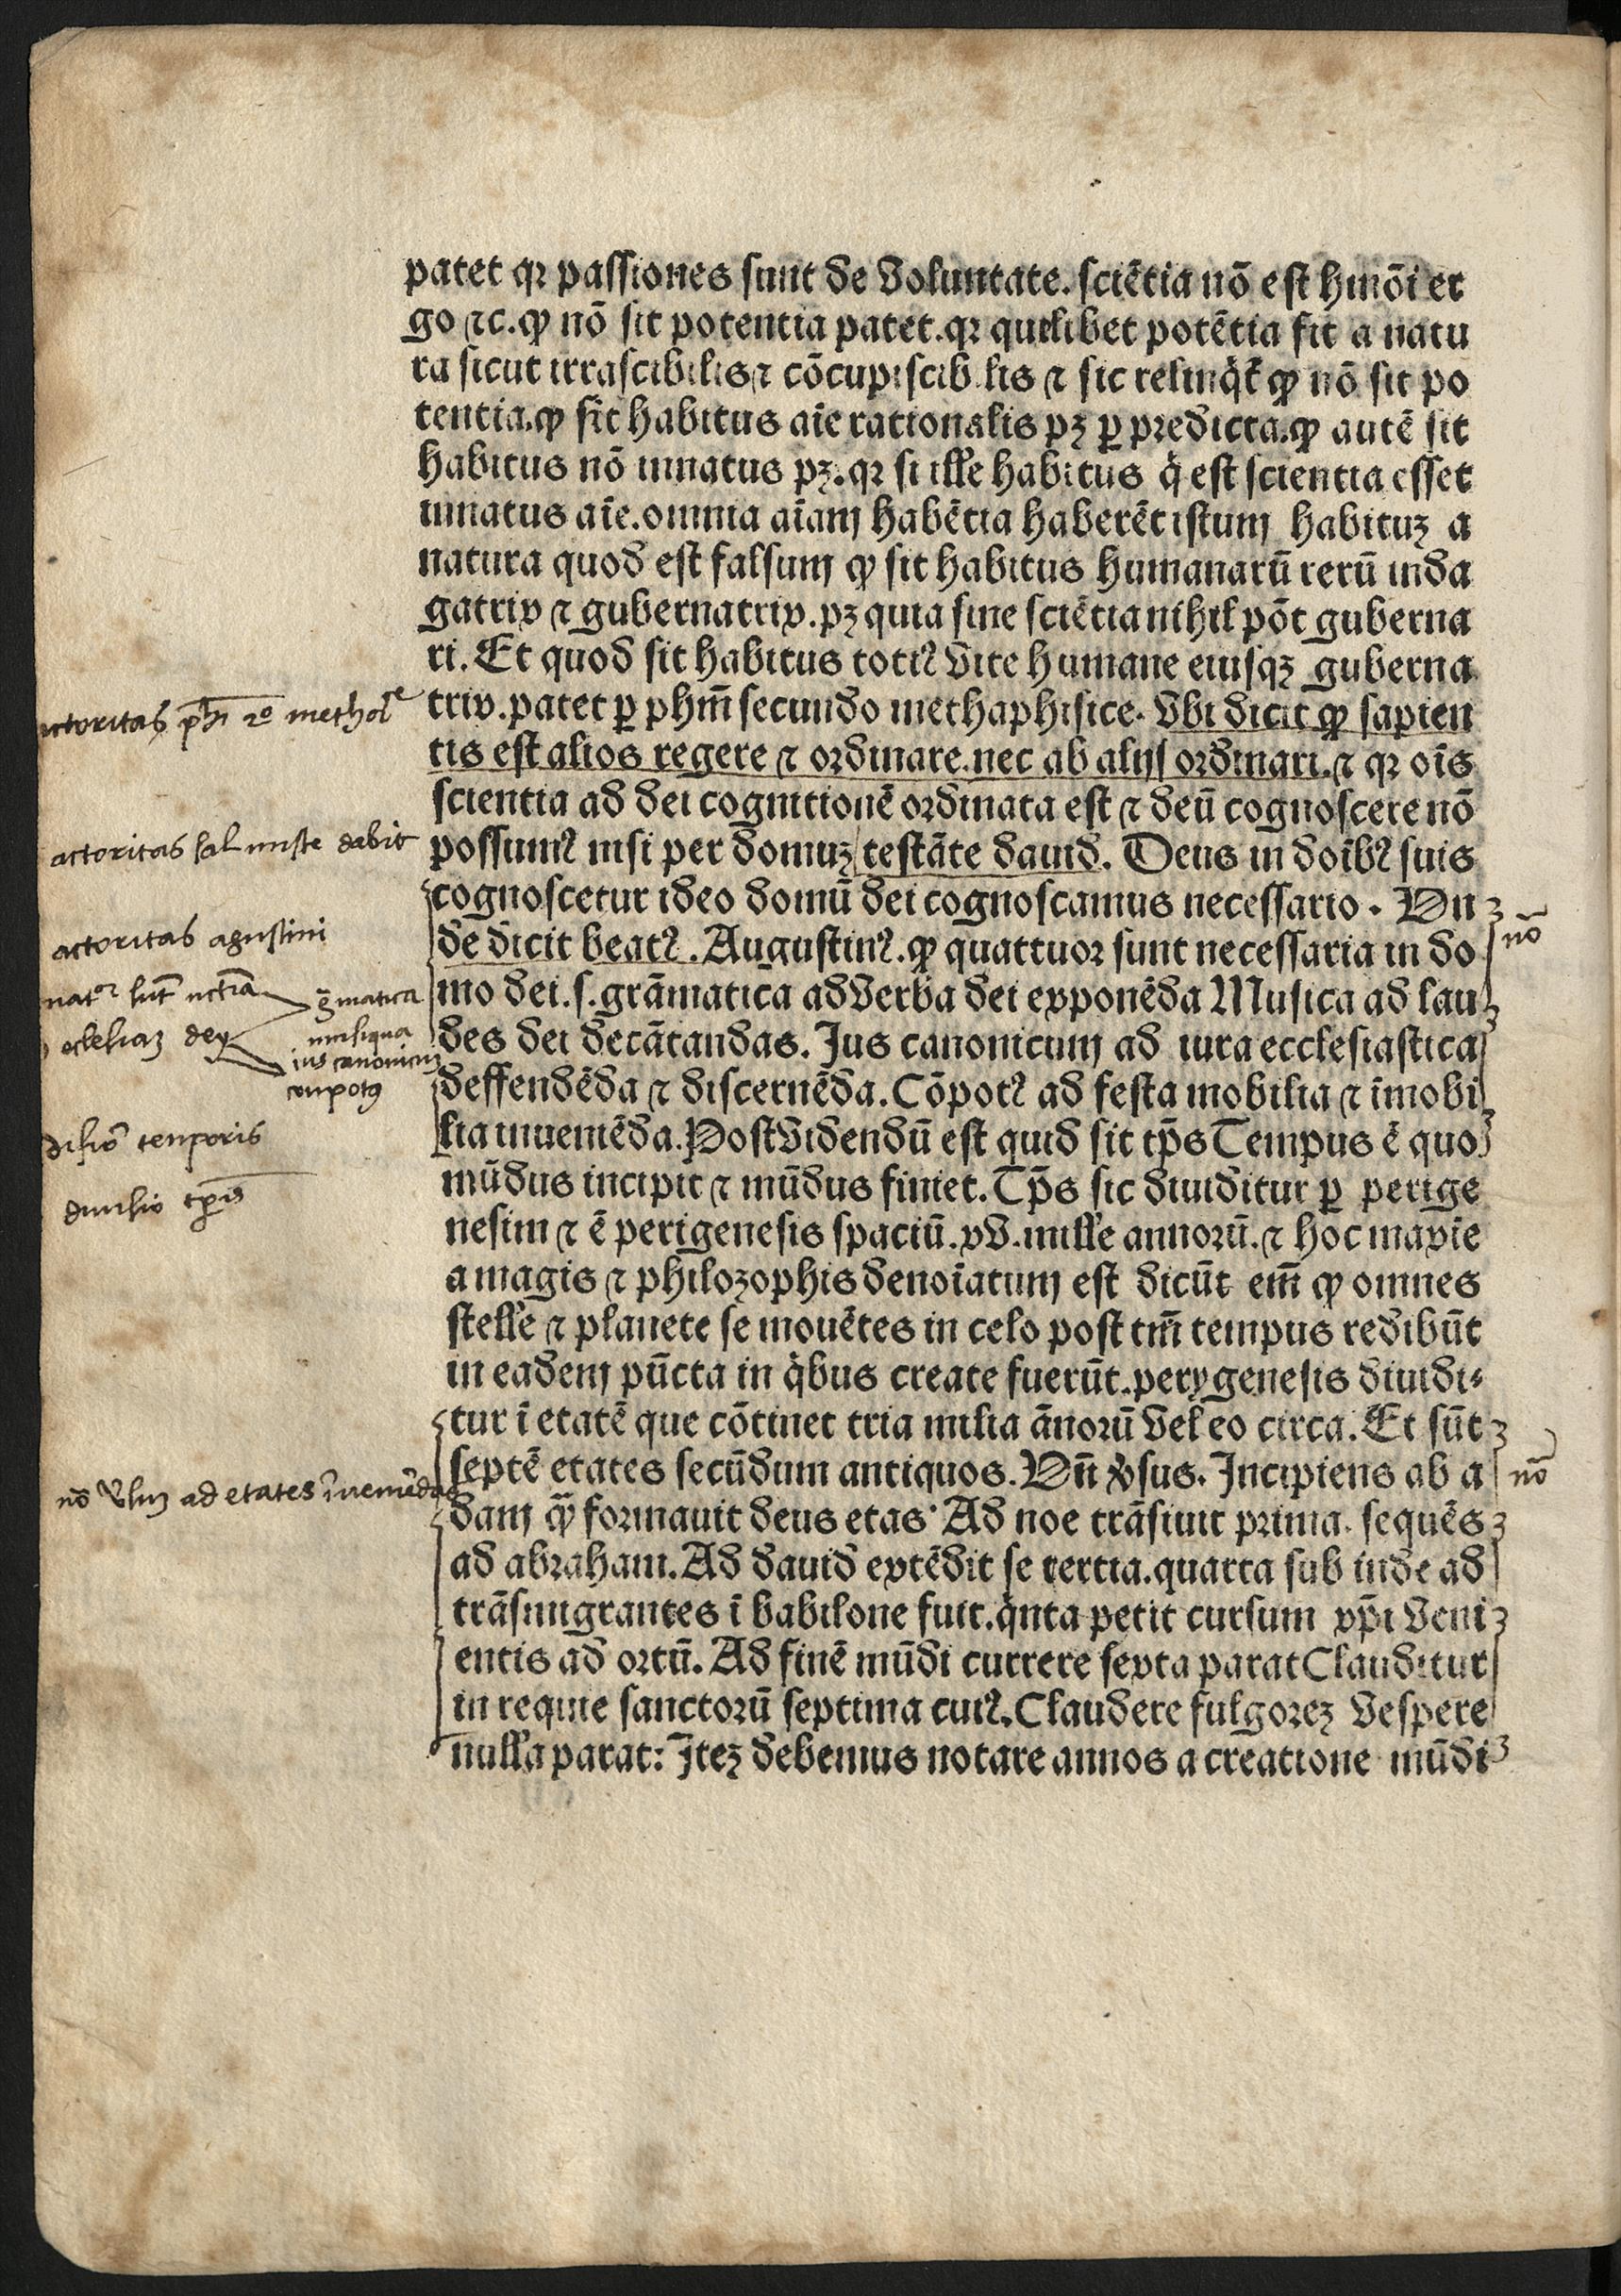 patet qꝛ passiones sunt de voluntate. sciētia nō est hmōi er
go ⁊c. ꝙ nō sit potentia patet. qꝛ quelibet potētia sit a natu
ra sicut irrascibilis ⁊ cōcupiscib lis ⁊ sic relinq̄t̄ ꝙ nō sit po
tentia. ꝙ sit habitus aīe rationalis pꝫ ꝑ predicta. ꝙ autē sit
habitus nō innatus pꝫ. qꝛ si ille habitus q̄ est scientia esset
innatus aīe. omnia aīam habētia haberēt istum habituꝫ a
natura quod est falsum ꝙ sit habitus humanarū rerū inda
gatrix ⁊ gubernatrix. pꝫ quia sine sciētia nihil pōt guberna
ri. Et quod sit habitus totiꝰ vite humane eiusqꝫ guberna
trix. patet ꝑ phm̄ secundo methaphisice. Vbi dicit ꝙ sapien
tis est alios regere ⁊ ordinare. nec ab alijs ordinari. ⁊ qꝛ oīs
scientia ad dei cognitionē ordinata est ⁊ deū cognoscere nō
possumꝰ nisi per domuꝫ testāte dauid. Deus in doībꝰ suis
cognoscetur ideo domū dei cognoscamus necessario. Vn
de dicit beatꝰ. Augustinꝰ. ꝙ quattuor sunt necessaria in do
mo dei. s. grāmatica ad verba dei exponēda Musica ad lau
des dei decātandas. Jus canonicum ad iura ecclesiastica
deffendēda ⁊ discernēda. Cōpotꝰ ad festa mobilia ⁊ īmobi
lia inueniēda. Post videndū est quid sit tp̄s Tempus ē quo
mūdus incipit ⁊ mūdus finiet. Tp̄s sic diuiditur ꝑ perige
nesim ⁊ ē perigenesis spaciū. xv. mille annorū. ⁊ hoc maxīe
a magis ⁊ philozophis denoīatum est dicūt em̄ ꝙ omnes
stelle ⁊ planete se mouētes in celo post tm̄ tempus redibūt
in eadem pūcta in q̇bus create fuerūt. perygenesis diuidi⸗
tur ī etatē que cōtinet tria milia ānorū vel eo circa. Et sūt
septē etates secūdum antiquos. Vn̄ ꝟsus. Incipiens ab a
dam ꝙ̄ formauit deus etas. Ad noe trāsiuit prima. sequēs
ad abraham. Ad dauid extēdit se tertia. quarta sub inde ad
trāsmigrantes ī babilone fuit. q̇nta petit cursum xp̄i veni
entis ad ortū. Ad finē mūdi currere sexta parat Clauditur
in requie sanctorū septima cuiꝰ. Claudere fulgoreꝫ vespere
nulla parat: Iteꝫ debemus notare annos a creatione mūdi
actoritas ph̄i 2o methaᵉ
actoritas salmiste dabit
actoritas agustini
nō
sunt
ḡmatica
musiqua
ius canonicuꝫ
conpotꝰ
eclesiaꝫ dey
difiō temporis
diuisio tp̄is
nō vsuꝫ ad etates īueniēdas
nō